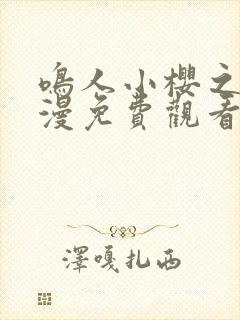 鳴人小櫻之
漫免費觀看
澤嘎扎西